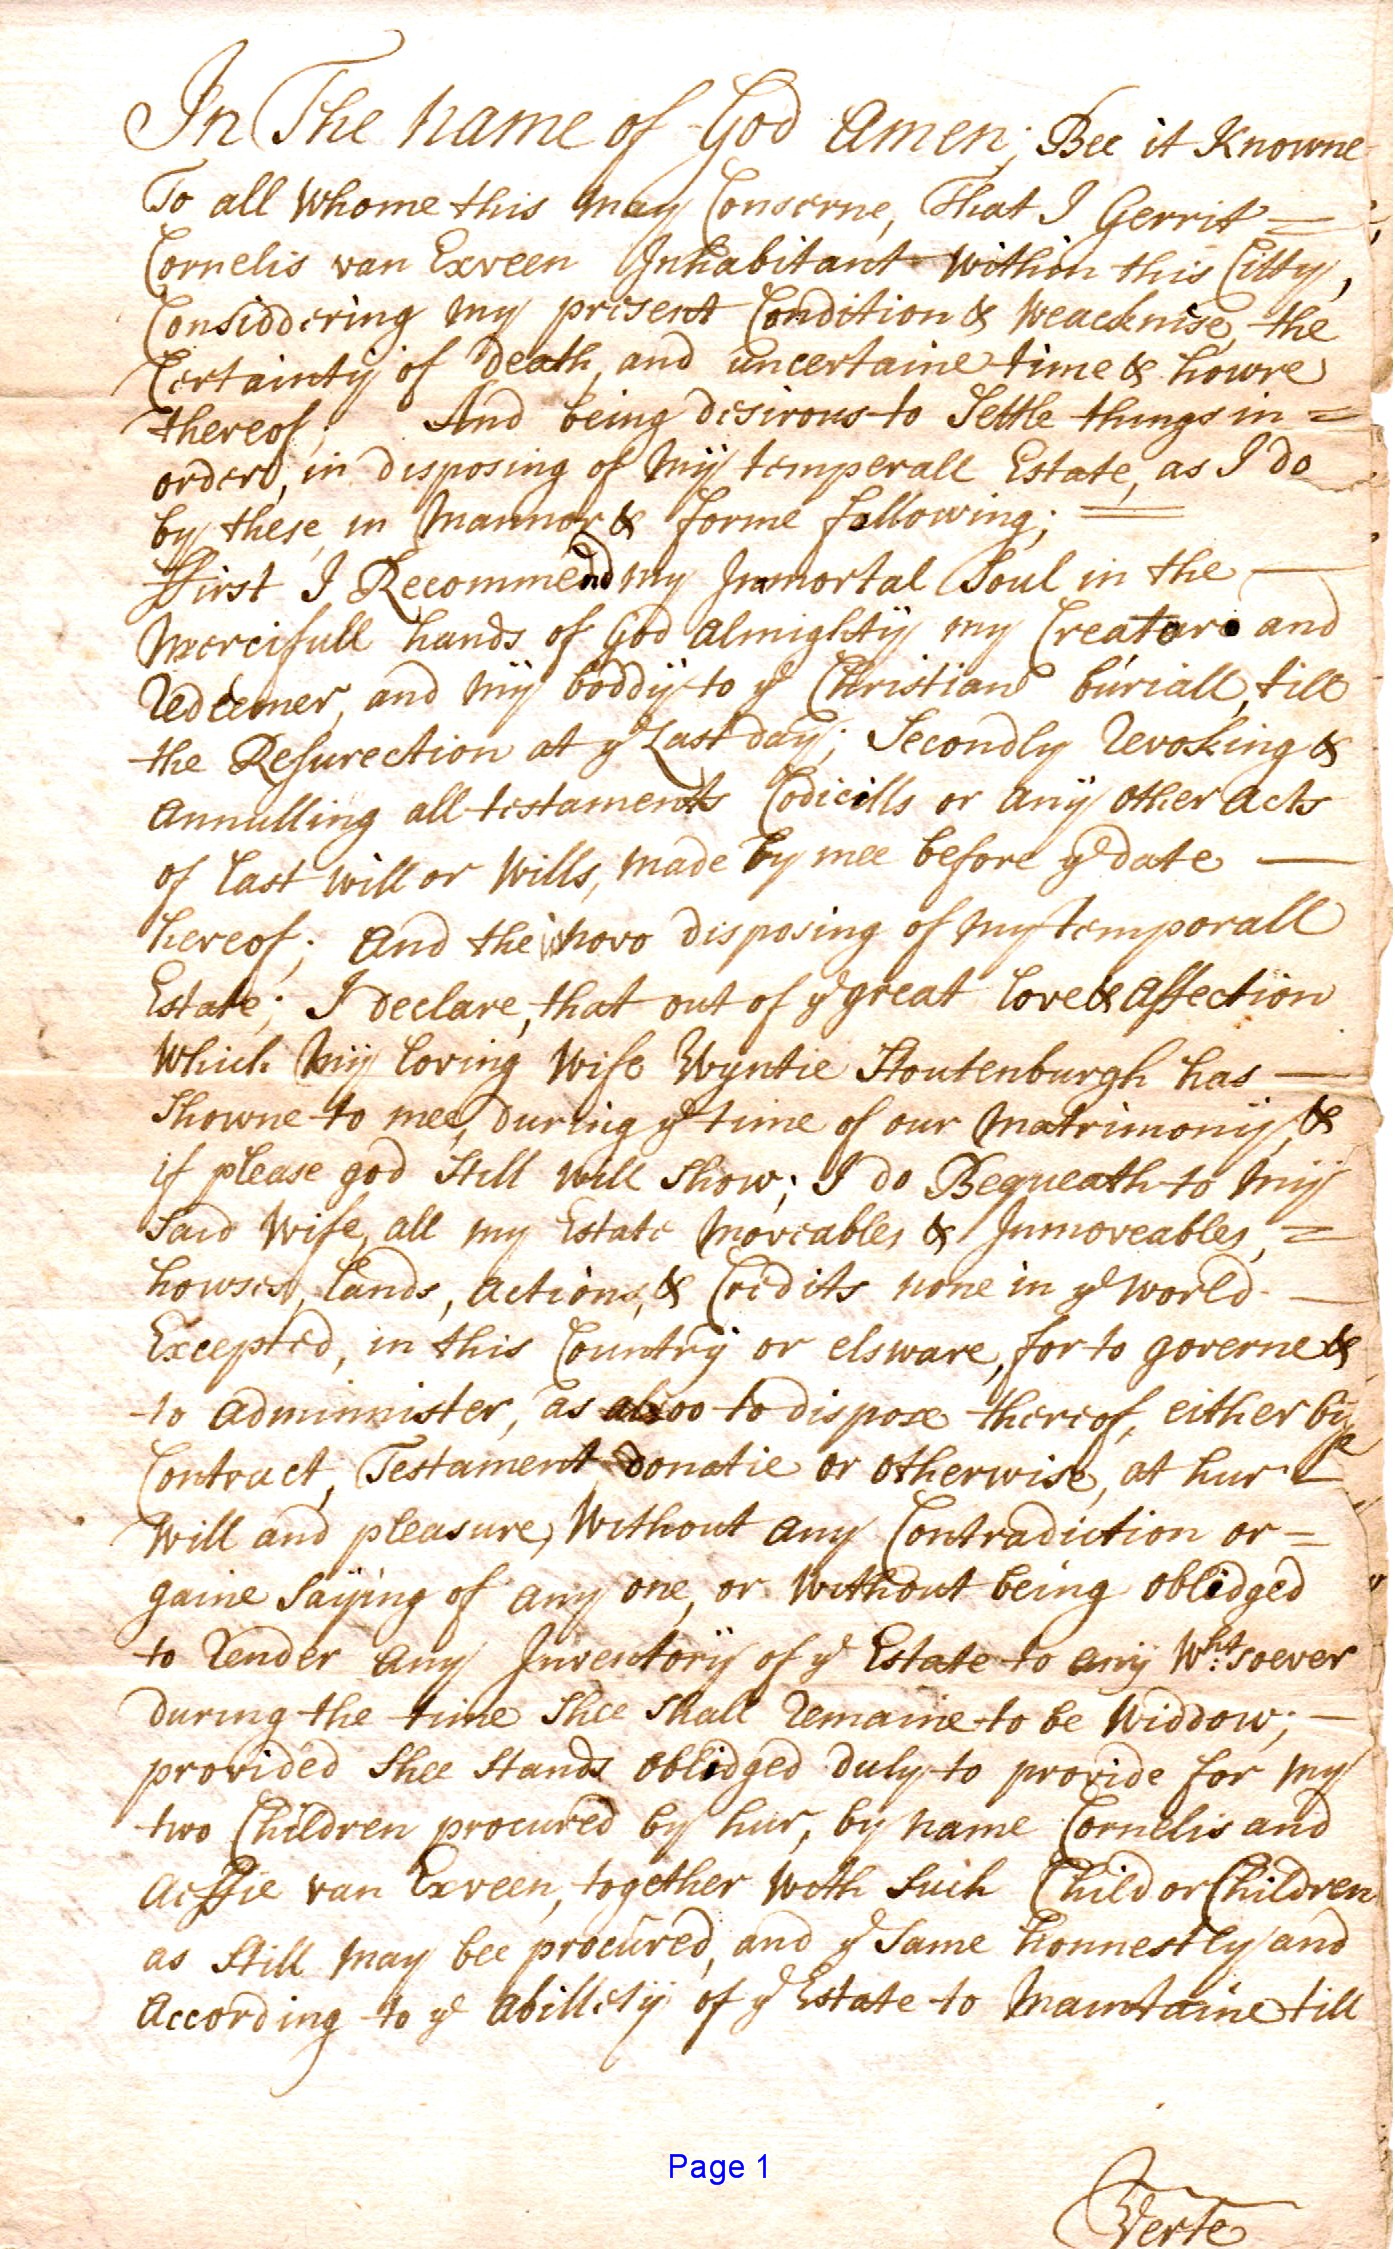 In The Name of God Amen; Bee it Knowne
To all Whome this May Conserne, That I Gerrit =
Cornelis van Exveen Inhabitant within this Citty,
Considdering my present Condition & Weacknise, the
Certainty of Death, and uncertaine time & howre
thereof; And being desirous to Settle things in =
orderd, in disposing of Mÿ temperall Estate, as I do
by these, in Mannor & forme following; =
First I Recommend my Inmortal Soul in the —
Mercifull hands of God almightÿ my Creator and
Redeemer, and Mÿ boddÿ to ye Christian buriall, till
the Resurection at ye Last day; Secondly Revoking &
Annulling all testaments Codicills or anÿ other Acts
of Last will or Wills, made by mee before ye date —
hereof; And the disposing of my temporall
Estate; I declare, that out of ye great Love & Affection
Which Mÿ Loving Wife Wyntie Stoutenburgh has —
Showne to mee, during ye time of our Matrimonÿ, &
if please god Still will Show; I do Bequeath to Mÿ
Said Wife, all my Estate Moveables & Inmoveables, =
howses, Lands, Actions, & Credits none in ye world. —
Excepted, in this Countrÿ or elsware, for to governe &
to administer, as alsoo to dispose thereof, either by
Contract, Testament Donatie or otherwise, at hur
Will and pleasure, Without any Contradiction or =
gaine Saÿing of any one, or Without being oblidged
to Render any Inventorÿ of ye Estate to anÿ Wht: soever
During the time Shee Shall Remaine to be Widdow; —
provided Shee Stands oblidged duly to provide for my
two Children procured by hur, by name Cornelis and
Aeffie van Exveen, together with Such Child or Children
as Still may bee procured, and ye Same honnestly and
According to ye Abilletÿ of ye Estate to Maintaine till
Page 1
Verte